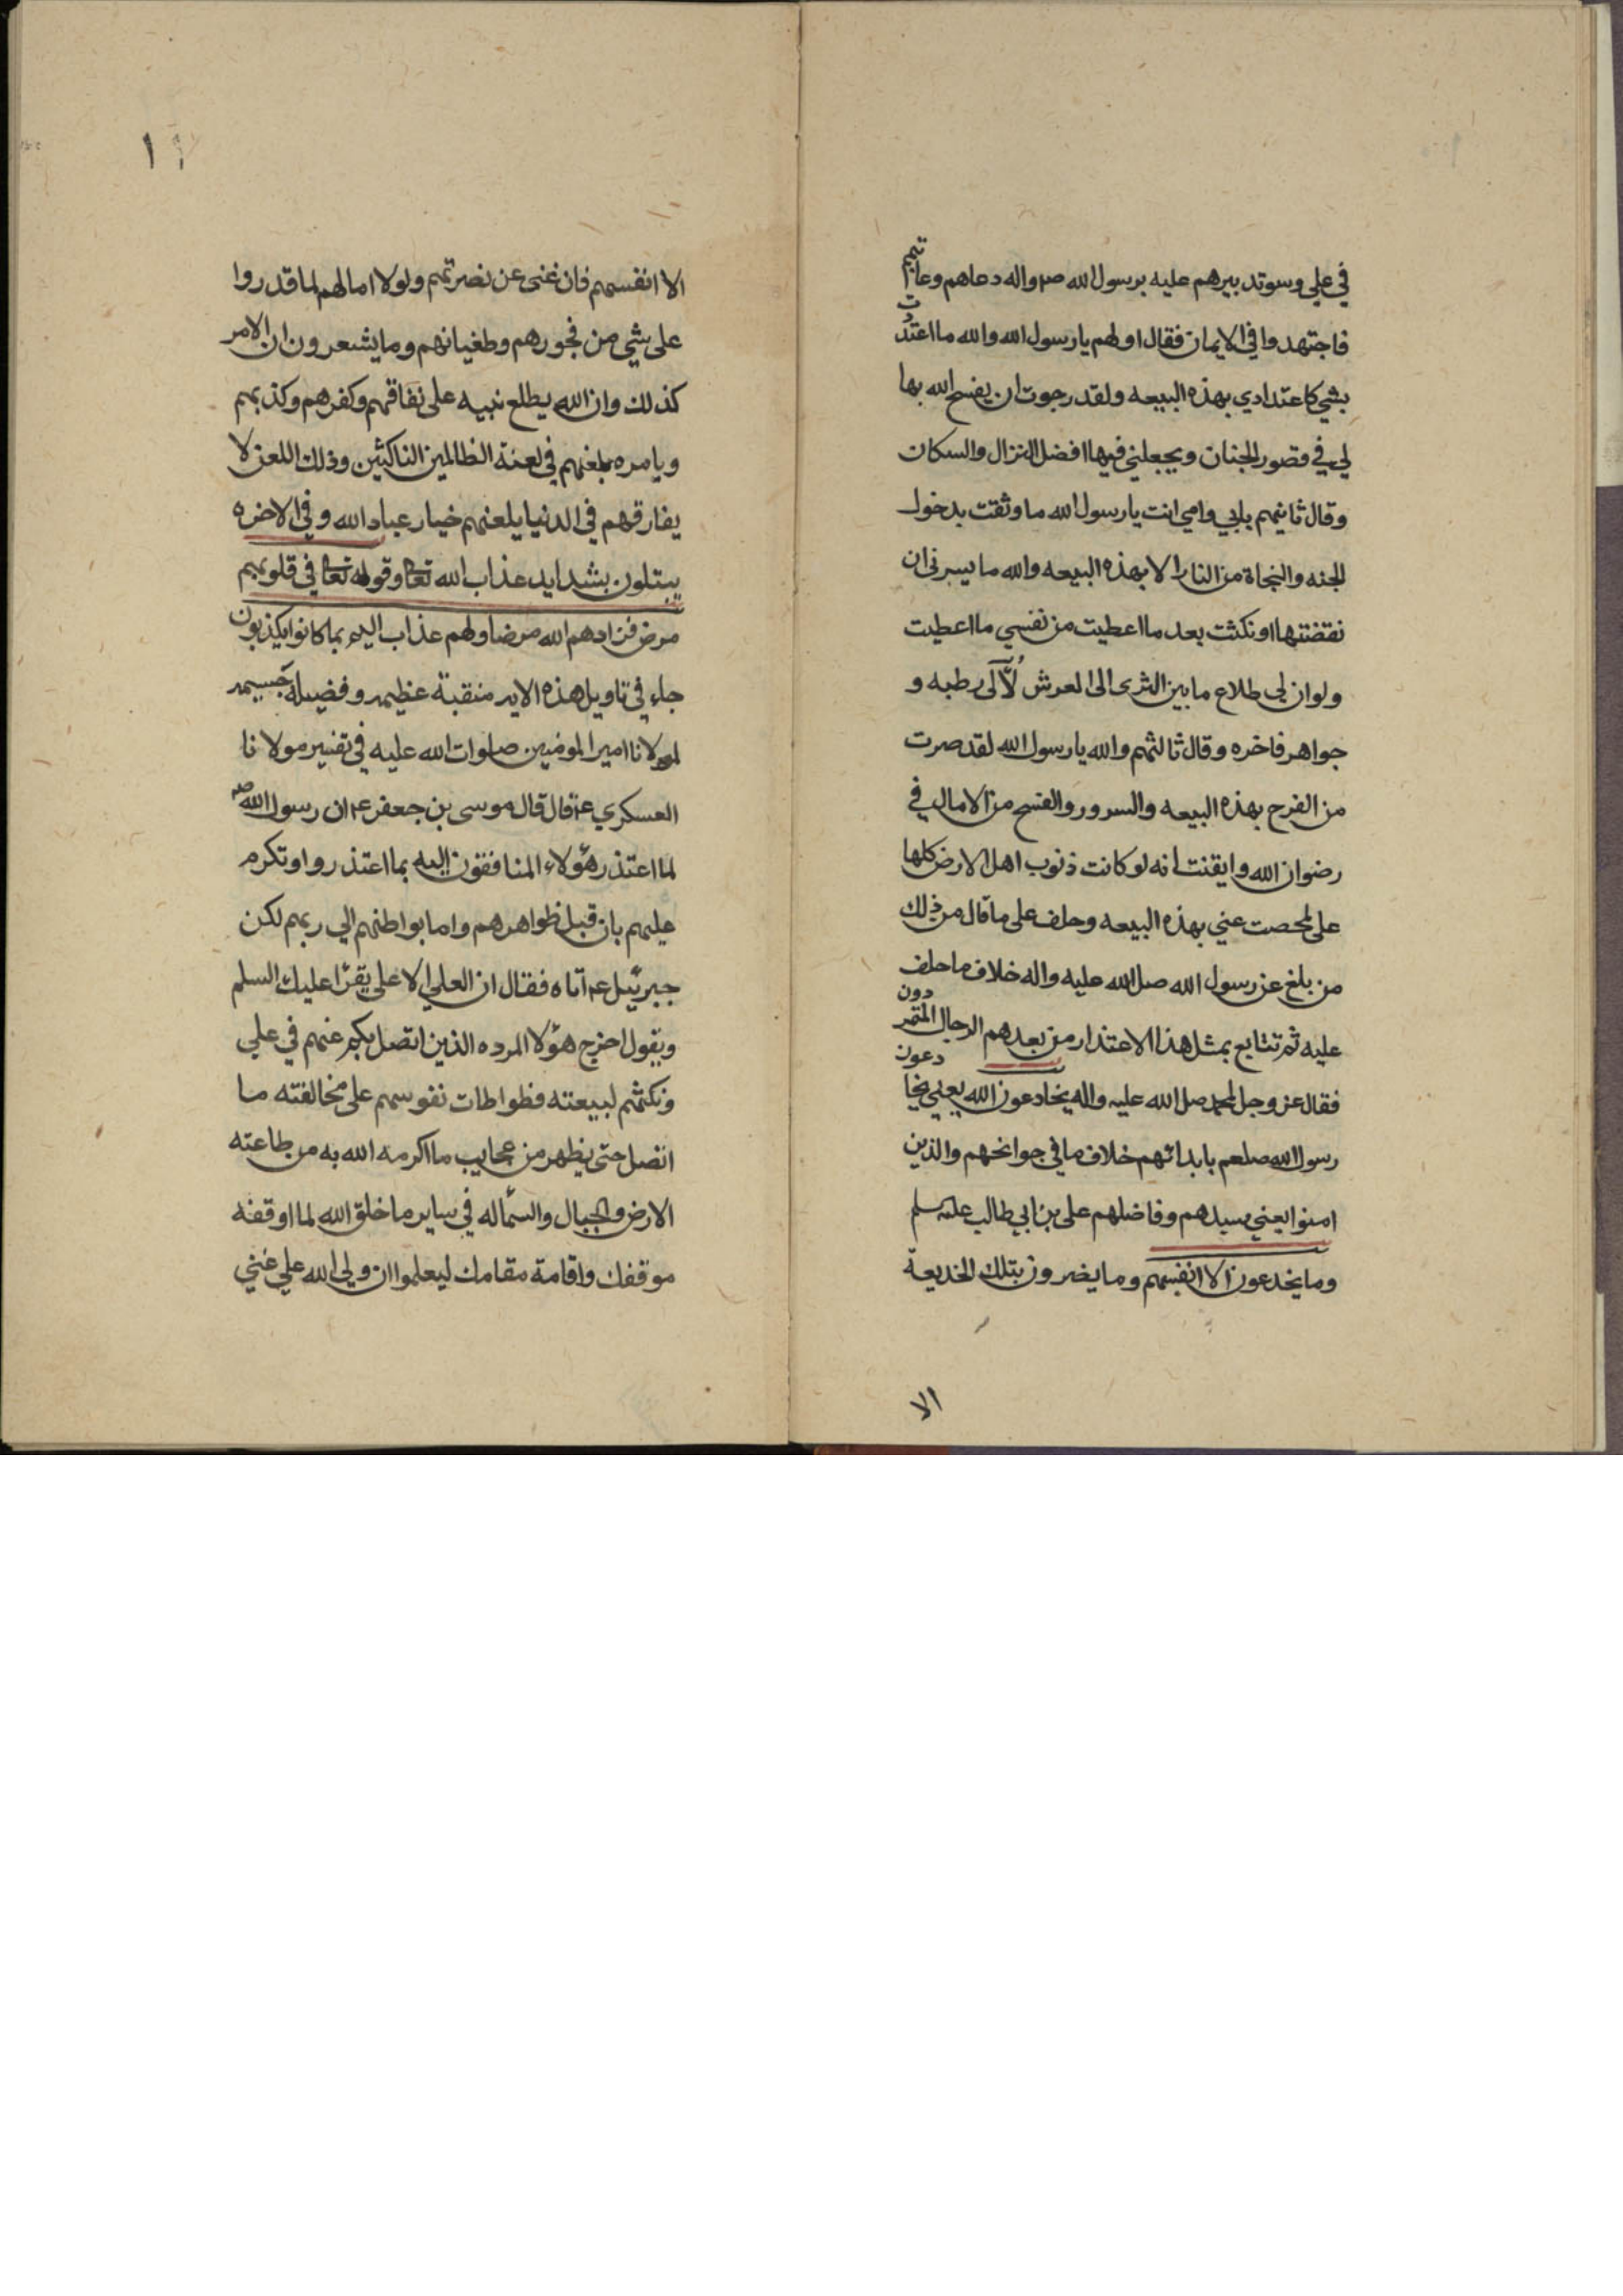 في علي وسوتدبيرهم عليه برسول الله صم واله دعاهم وعاتبهم
فاجتهدوا في الايمان فقال اولهم يا رسول الله والله ما اعتددت
بشي كاعتدادي بهذه البيعه ولقد رجوت ان يفسح الله بها
لي في قصور الجنان ويجعلني فيها افضل النزال والسكان
وقال ثانيهم بابي وامي انت يا رسول الله ما وثقت بدخول
الجنه والنجاة من النار الا بهذه البيعه والله ما يسرني ان
نقضتها او نكثت بعد ما اعطيت من نفسي ما اعطيت
ولو ان لي طلاع ما بين الثرى الى العرش لآلى رطبه و
جواهر فاخره وقال ثالثهم والله يا رسول الله لقد صرت
من الفرح بهذه البيعه والسرور والفسح من الامال في
رضوان الله وايقنت انه لو كانت ذنوب اهل الارض كلها
على لمحصت عني بهذه البيعه وحلف على ما قال من ذلك
من بلغ عن رسول الله صلى الله عليه واله خلاف ما حلف
عليه ثم تتابع بمثل هذا الاعتذار من بعدهم الرجال المتمردون
فقال عز وجل لمحمد صلى الله عليه واله يخادعون الله يعني يخادعون
رسول الله صلعم بابدائهم خلاف ما في جوانحهم والذين
امنوا يعني سيدهم وفاضلهم على بن ابي طالب علیہ سلم
وما يخدعون الا انفسهم وما يضرون بتلك الخديعة
الا
١
الا انفسهم فان غنى عن نصرتهم ولولا امالهم لما قدروا
على شي من فجورهم وطغيانهم وما يشعرون ان الامر
كذلك وان الله يطلع نبيه على نفاقهم وكفرهم وكذبهم
ويامره بلعنهم في لعنة الظالمين الناكثين وذلك اللعن لا
يفارقهم في الدنيا يلعنهم خيار عباد الله وفي الاخره
يبتلون بشدايد عذاب الله تعا وقوله تعا في قلوبهم
مرض فزادهم الله مرضا ولهم عذاب اليم بما كانوا يكذبون
جاء في تاويل هذه الايه منقبة عظيمه وفضيلة جسيمه
لمولانا امير المومنين صلوات الله عليه في تفسير مولانا
العسكري ع قال قال موسى بن جعفر ع ان رسول الله ص
لما اعتذر هؤلاء المنافقون اليه بما اعتذروا وتكرم
عليهم بان قبل ظواهرهم واما بواطنهم الي ربهم لكن
جبرئيل ع اتاه فقال ان العلي الاعلى يقرا عليك السلم
ويقول اخرج هؤلا المرده الذين اتصل بكم عنهم في علي
ونكثهم لبيعته فطواطات نفوسهم على مخالفته ما
اتصل حتى يظهر من عجايب ما اكرمه الله به من طاعته
الارض والجبال والسماله في ساير ما خلق الله لما اوقفه
موقفك واقامة مقامك ليعلموا ان ولي الله علي غني